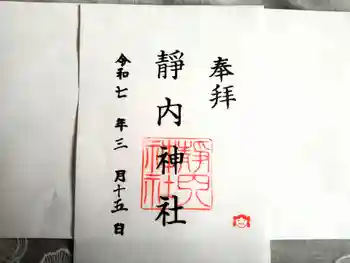 奉拝
靜内神社
令和七年三月十五日
靜内
神社